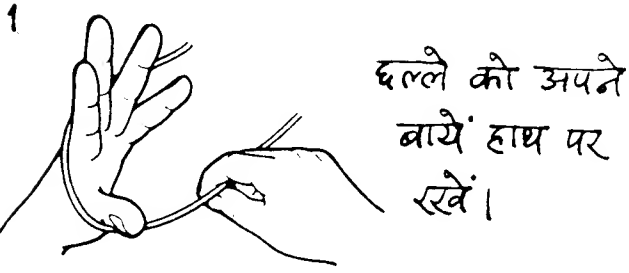 1
छल्ले को अपने
बायें हाथ पर
रखें।